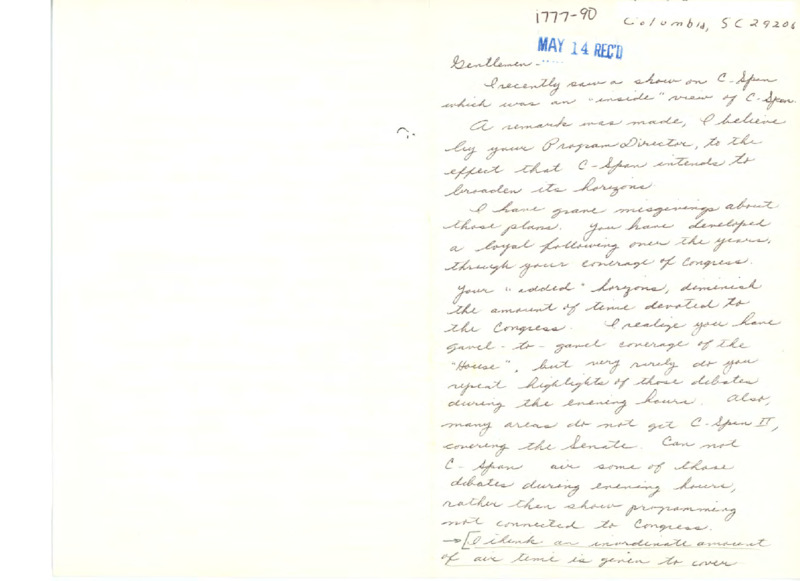 1777-90
Columbia, SC 29206
MAY 14 REC'D
Gentlemen -
I recently saw a show on C-Span
which was an "inside" view of C-Span.
A remark was made, I believe
by your Program Director, to the
effect that C-Span intends to
broaden its horizons
I have grave misgivings about
those plans. You have developed
a loyal following over the years,
through your coverage of Congress.
Your "added" horizons, diminish
the amount of time devoted to
the Congress. I realize you have
gavel-to-gavel coverage of the
"House", but very rarely do you
repeat highlights of those debates
during the evening hours. Also,
many areas do not get C-Span II,
covering the Senate. Can not
C-Span air some of those
debates during evening hours,
rather then show programming
not connected to Congress.
→ [I think an inordinate amount
of air time is given to cover